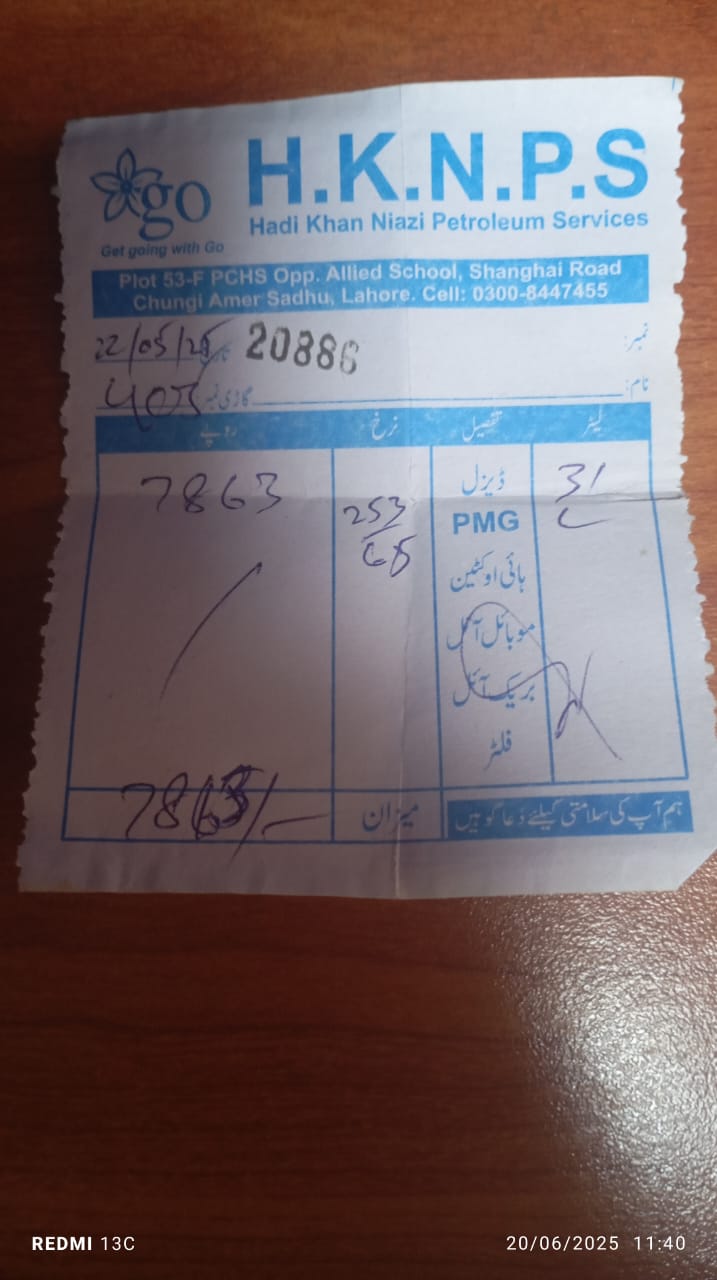 go
Get going with Go
H.K.N.P.S
Hadi Khan Niazi Petroleum Services
Plot 53-F PCHS Opp. Allied School, Shanghai Road
Chungi Amer Sadhu, Lahore. Cell: 0300-8447455
نمبر: 20886 تاریخ 22/05/25
نام: گاڑی نمبر 405
لیٹر تفصیل نرخ روپے
31 ڈیزل 7863
PMG 253
ہائی اوکٹین
موبائل آئل
بریک آئل
فلٹر
ہم آپ کی سلامتی کیلئے دعا گو ہیں میزان 7863/-
REDMI 13C
20/06/2025 11:40